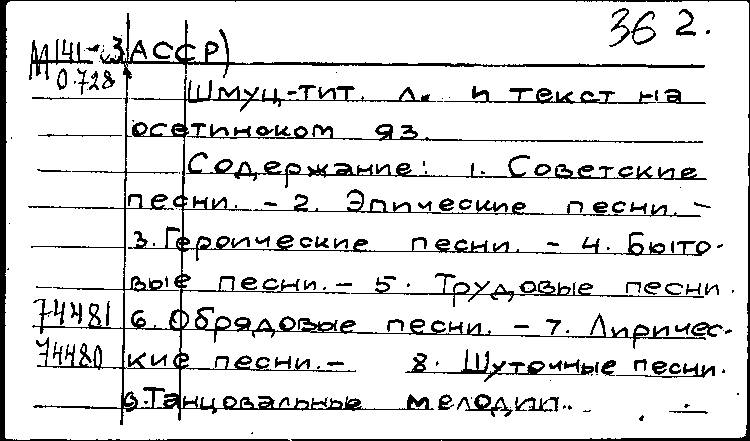 36 2.
М141-3 АССР)
0.728
Шмуц-тит. л. и текст на
осетинском яз.
Содержание: 1. Советские
песни. - 2. Эпические песни. -
3. Героические песни. - 4. Быто-
вые песни. - 5. Трудовые песни.
74481 6. Обрядовые песни. - 7. Лиричес-
74480 кие песни. - 8. Шуточные песни.
9. Танцовальные мелодии.